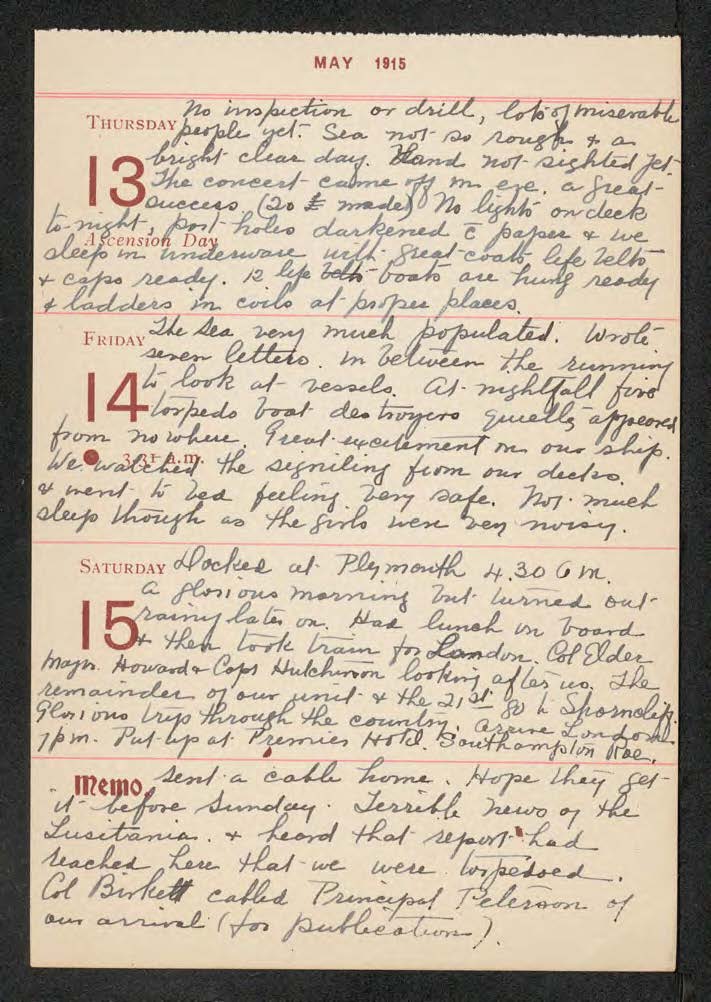 MAY 1915
THURSDAY No inspection or drill, lots of miserable
people yet. Sea not so rough & a
13 bright clear day. Land not sighted yet.
The concert came off in eve. a great
success (20 £ made) No lights on deck
to-night, port holes darkened c̄ paper & we
Ascension Day
sleep in underware with great coats life belts
& caps ready. 12 life belts boats are hung ready
& ladders in coils at proper places.
FRIDAY The Sea very much populated. Wrote
seven letters. in between the running
14 to look at vessels. At nightfall five
torpedo boat destroyers quietly appeared
from nowhere. Great excitement on our ship.
3.31 a.m.
We watched the signiling from our decks.
& went to bed feeling very safe. Not much
sleep though as the girls were very noisy.
SATURDAY Docked at Plymouth 4.30 a m.
a glorious morning but turned out
15 rainy later on. Had lunch on board
& then took train for London. Col Elder
Major Howard & Capt Hutchinson looking after us. The
remainder of our unit & the 21st go to Shorncliff.
Glorious trip through the country. arrive London
7 pm. Put up at Premier Hotel. Southampton Roe.
Memo. Sent a cable home. Hope they get
it before Sunday. Terrible news of the
Lusitania. & heard that report had
reached here that we were torpedoed.
Col Birkett cabled Principal Peterson of
our arrival (for publication).